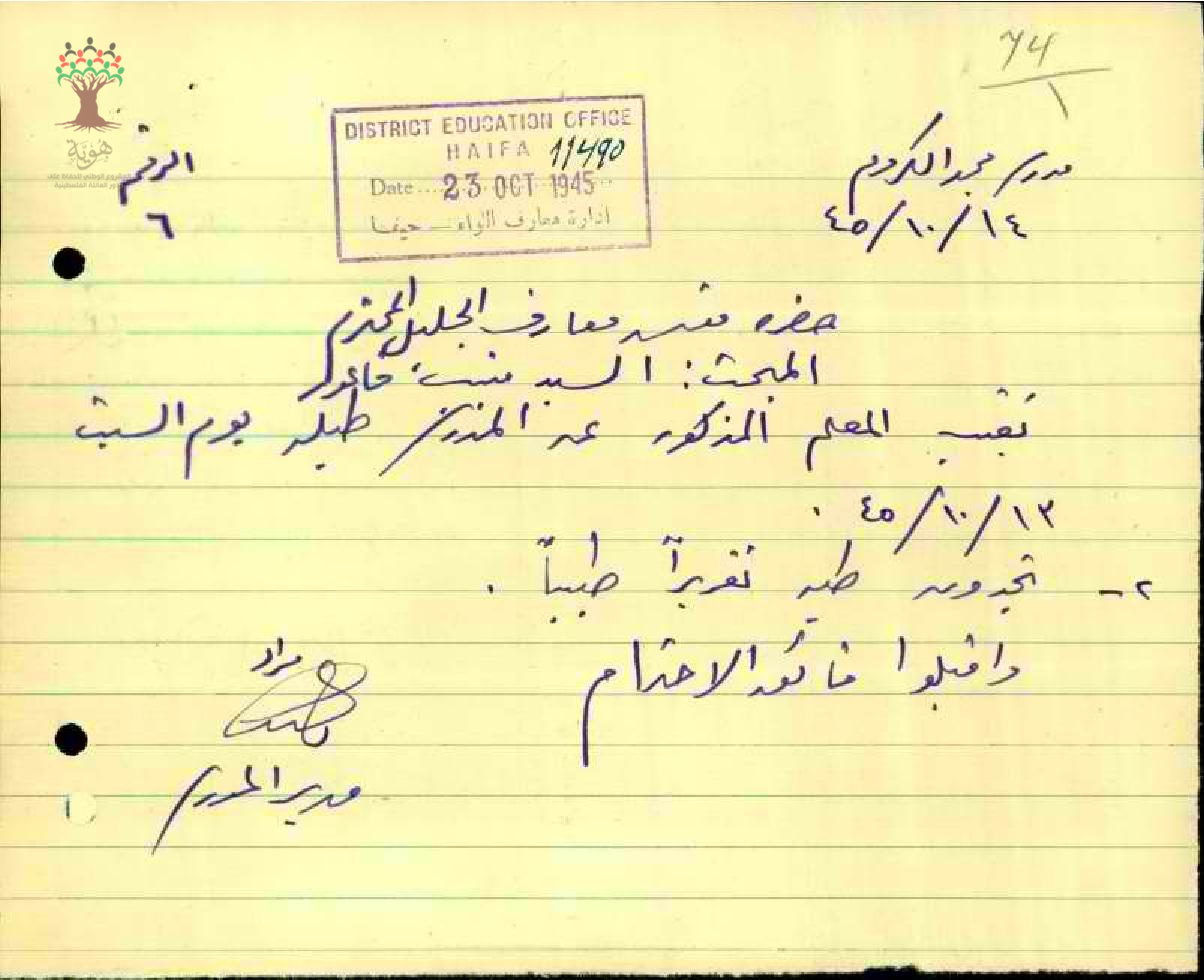 74
مدرسة مجد الكروم
١٤/١٠/٤٥
DISTRICT EDUCATION OFFICE
HAIFA 11490
Date....23 OCT 1945..
ادارة معارف اللواء – حيفا
الرقم
٦
هوية
حضرة مفتش معارف الجليل المحترم
المبحث: السيد منيب قاعور
تغيب المعلم المذكور عن المدرسة طيلة يوم السبت
١٣/١٠/٤٥ .
٢- تجدون طيه تقريراً طبياً .
واقبلوا فائق الاحترام
مراد
مدير المدرسة